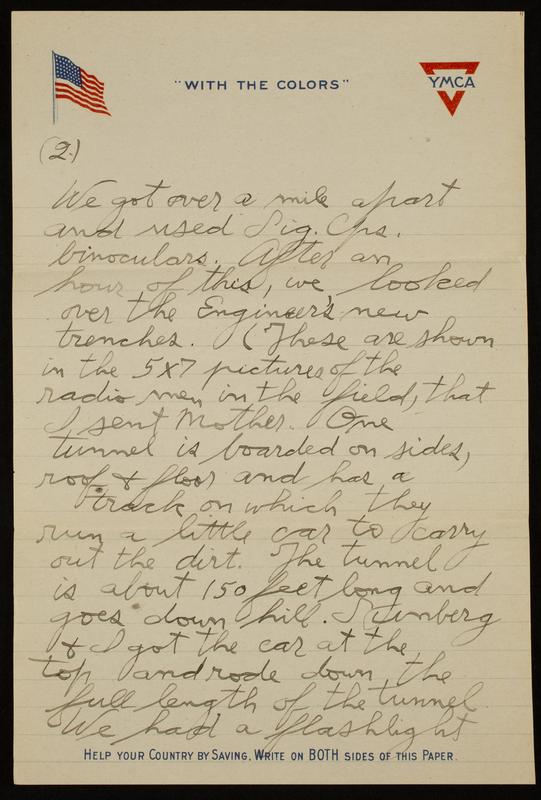 "WITH THE COLORS"
YMCA
(2.)
We got over a mile apart
and used Sig. Cps.
binoculars. After an
hour of this, we looked
over the Engineer's new
trenches. (These are shown
in the 5x7 pictures of the
radio men in the field, that
I sent Mother. One
tunnel is boarded on sides,
roof & floor and has a
track on which they
run a little car to carry
out the dirt. The tunnel
is about 150 feet long and
goes down hill.
& I got the car at the
top and rode down the
full length of the tunnel
We had a flashlight
HELP YOUR COUNTRY BY SAVING. WRITE ON BOTH SIDES OF THIS PAPER.